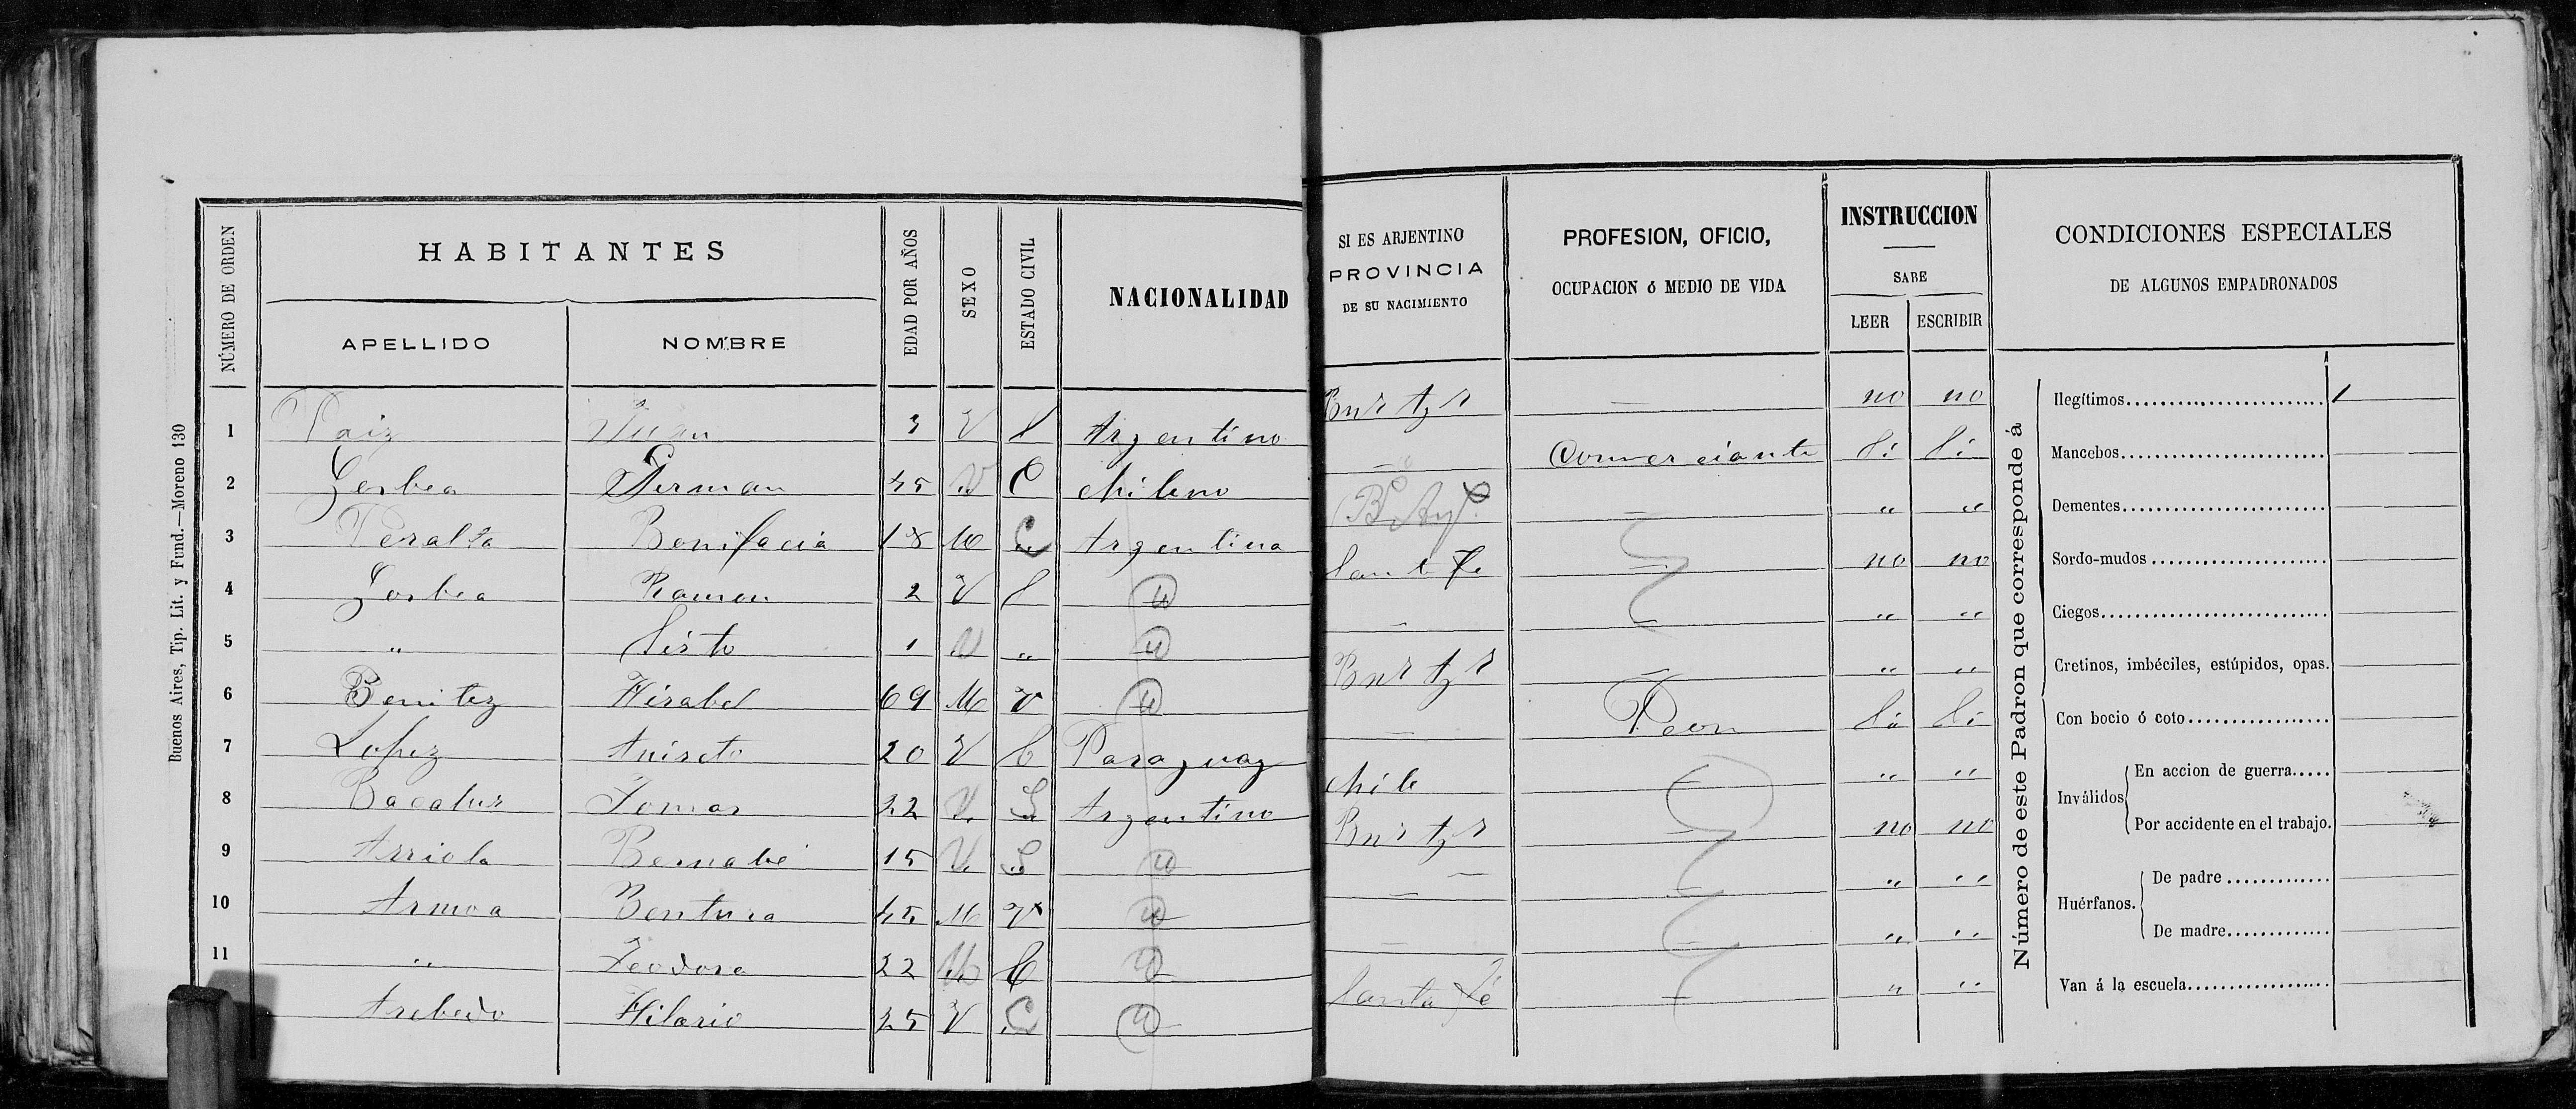 Buenos Aires, Tip. Lit. y Fund.—Moreno 130
NÚMERO DE ORDEN
HABITANTES
APELLIDO NOMBRE
EDAD POR AÑOS
SEXO
ESTADO CIVIL
NACIONALIDAD
SI ES ARJENTINO
PROVINCIA
DE SU NACIMIENTO
PROFESION, OFICIO,
OCUPACION ó MEDIO DE VIDA
INSTRUCCION
SABE
LEER ESCRIBIR
CONDICIONES ESPECIALES
DE ALGUNOS EMPADRONADOS
1 Paiz Juan 3 V S Argentino Bns Ays — no no
2 Gorbea German 45 V C Chileno — Comerciante Si Si
3 Peralta Bonifacia 18 M C Argentina Bs Ays — " "
4 Gorbea Ramon 2 V S " Santa Fe — no no
5 " Sisto 1 V " " — " "
6 Benitez Hisabel 69 M V " Bns Ays — " "
7 Lopez Aniseto 20 V C Paraguay — Peon Si Si
8 Tomas 22 V S Argentino Chile " "
9 Arriola Bernabé 15 V S " Bns Ays — no no
10 Armoa Bentura 45 M V " — " "
11 " Teodora 22 M C " — — " "
Arebedo Hilario 25 V C " Santa Fé — " "
Número de este Padron que corresponde á
Ilegítimos 1
Mancebos
Dementes
Sordo-mudos
Ciegos
Cretinos, imbéciles, estúpidos, opas.
Con bocio ó coto
Inválidos
En accion de guerra
Por accidente en el trabajo.
Huérfanos.
De padre
De madre
Van á la escuela